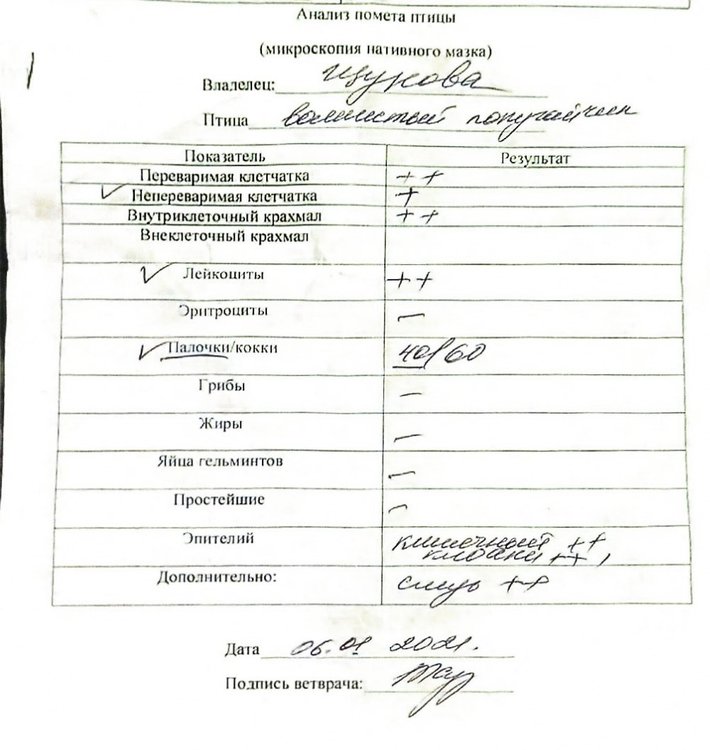 Анализ помета птицы
(микроскопия нативного мазка)
Владелец: Щукова
Птица волнистый попугайчик
Показатель Результат
Переваримая клетчатка ++
Непереваримая клетчатка +
Внутриклеточный крахмал ++
Внеклеточный крахмал
Лейкоциты ++
Эритроциты —
Палочки/кокки 40/60
Грибы —
Жиры —
Яйца гельминтов —
Простейшие —
Эпителий кишечный ++
клоаки ++,
Дополнительно: слизь ++
Дата 06.01 2021.
Подпись ветврача: